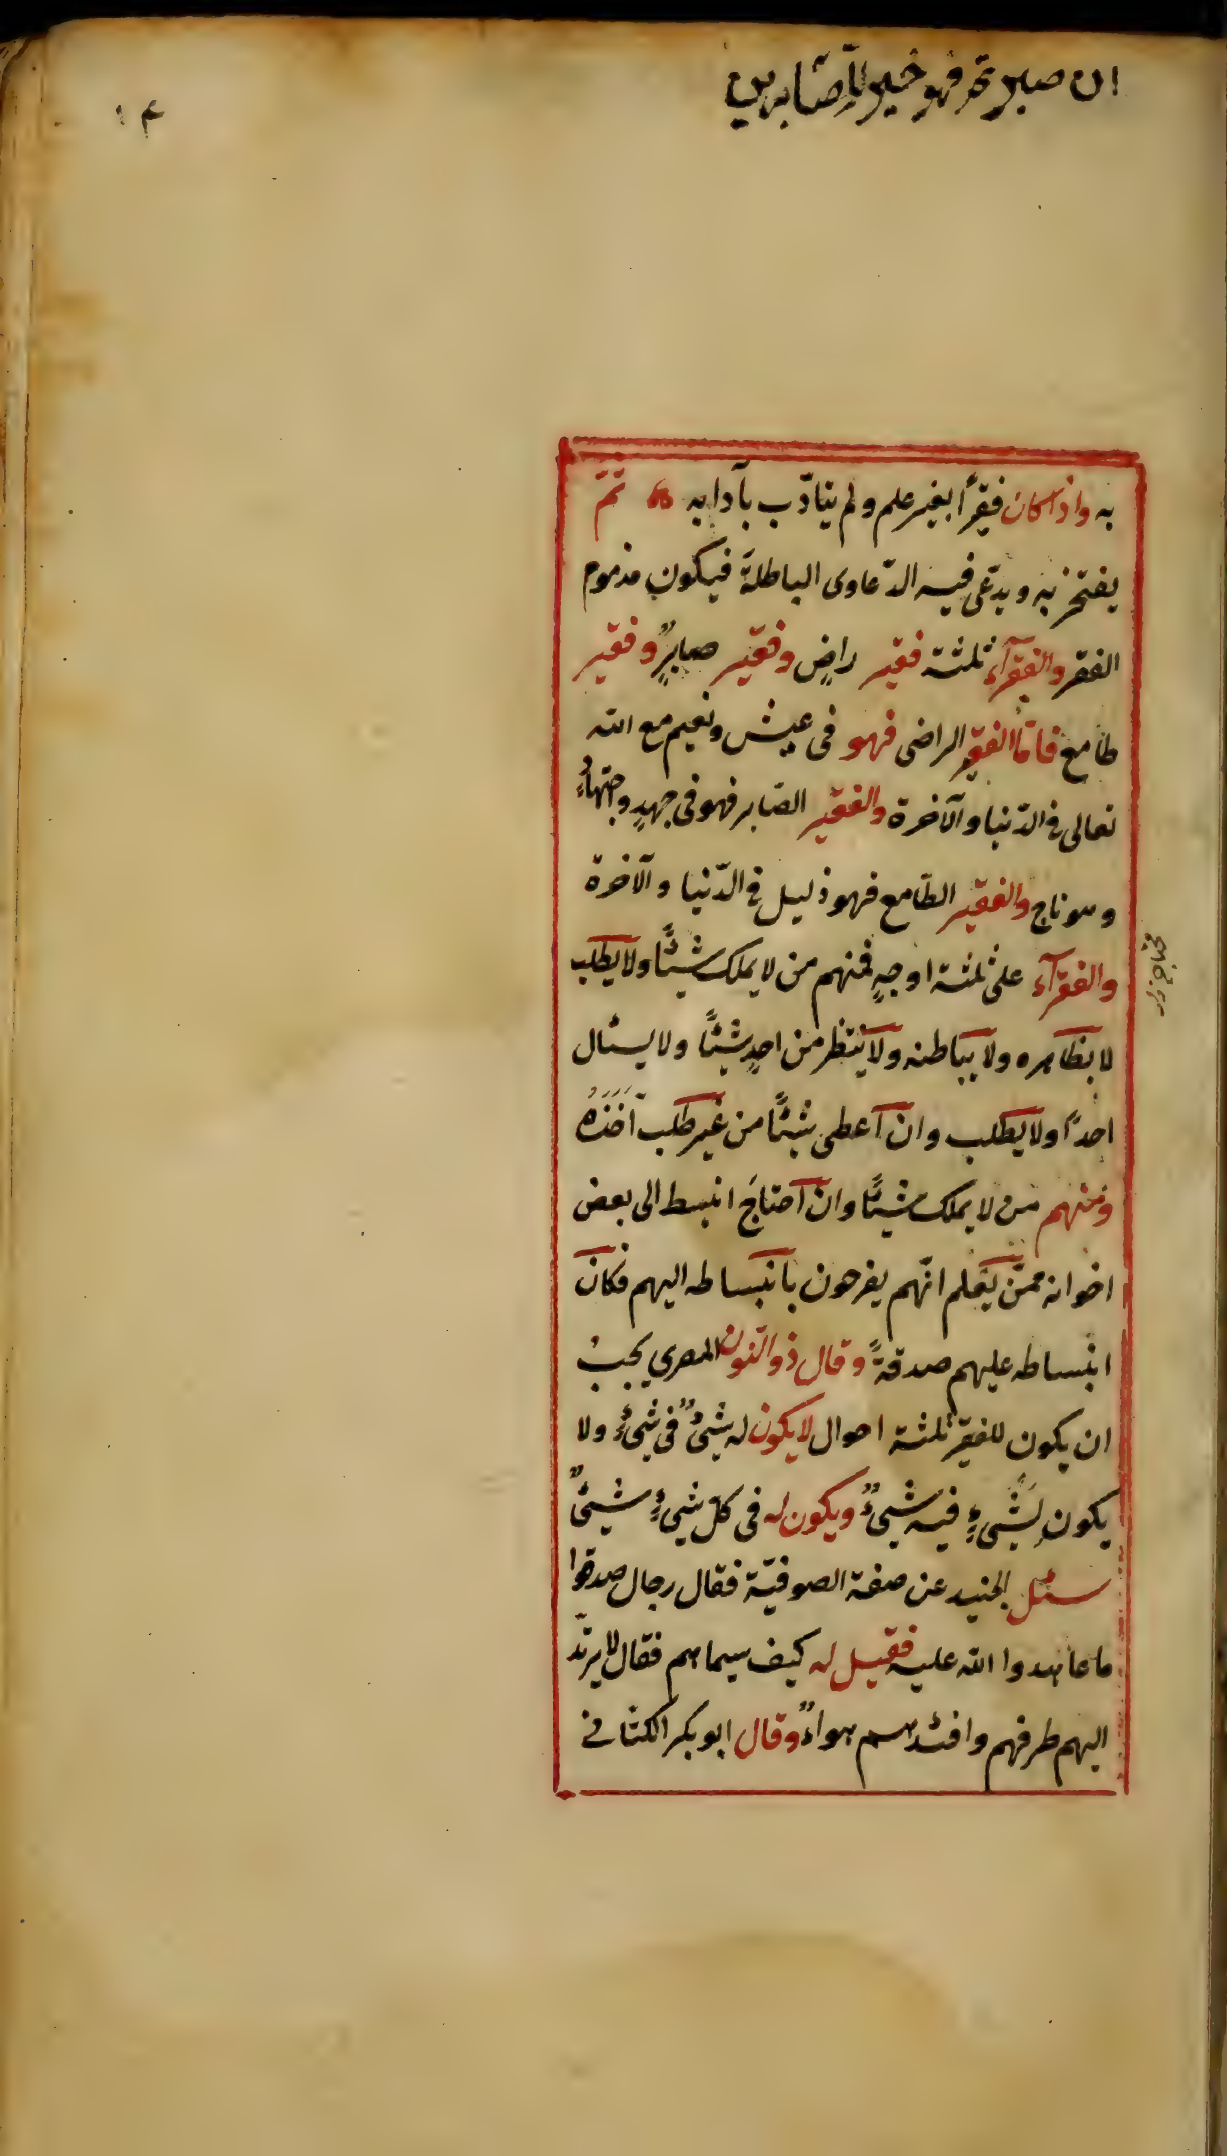 ان صبرتم فهو خير للصّابرين
١٤
به واذا كان فقيرًا بغير علم ولم يتادّب بآدابه ثمّ
يفتخر به ويدّعى فيه الدّعاوى الباطلة فيكون مذموم
الفقر والفقرآء ثلثة فقير راضٍ وفقير صابرٌ وفقير
طامع فامّا الفقير الراضى فهو فى عيش ونعيم مع الله
تعالى فى الدّنيا والآخرة والفقير الصّابر فهو فى جهدٍ واجتهادٍ
وهو ناج والفقير الطّامع فهو ذليل فى الدّنيا والآخرة
والفقرآء على ثلثة اوجهٍ فمنهم من لا يملك شيئًا ولا يطلب
لا بظاهره ولا بباطنه ولا ينتظر من احدٍ شيئًا ولا يسئال
احدًا ولا يطلب وان اعطى شيئًا من غير طلب اَخَذَهُ
ومنهم من لا يملك شيئًا وان احتاجَ انبسط الى بعض
اخوانه ممّن يعلم انّهم يفرحون بانبساطه اليهم فكان
انبساطه عليهم صدقةً وقال ذو النّون المصرى يجبُ
ان يكون للفقير ثلثة احوال لا يكون له شىءٌ فى شىءٍ ولا
يكون لِشىءٍ فيه شىءٌ ويكون له فى كلّ شىءٍ شيئٌ
سئل الجنيد عن صفة الصوفيّة فقال رجال صدقوا
ما عاهدوا الله عليه فقيل له كيف سيماهم فقال لا يرتدّ
اليهم طرفهم وافئدتهم هواءٌ وقال ابو بكر الكتانى